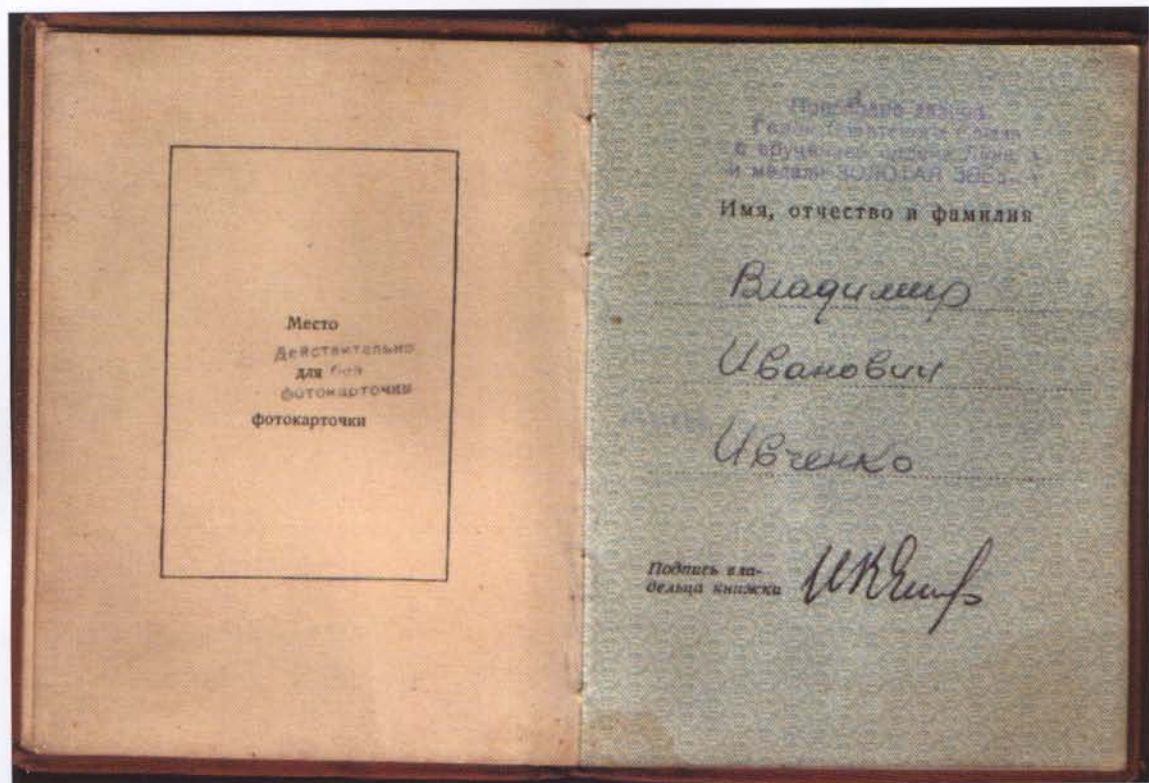 Место
Действительно
для без
фотокарточки
фотокарточки
Присвоено звание
Героя Советского Союза
с вручением ордена Ленина
и медали ЗОЛОТАЯ ЗВЕЗДА
Имя, отчество и фамилия
Владимир
Иванович
Ивченко
Подпись вла-
дельца книжки